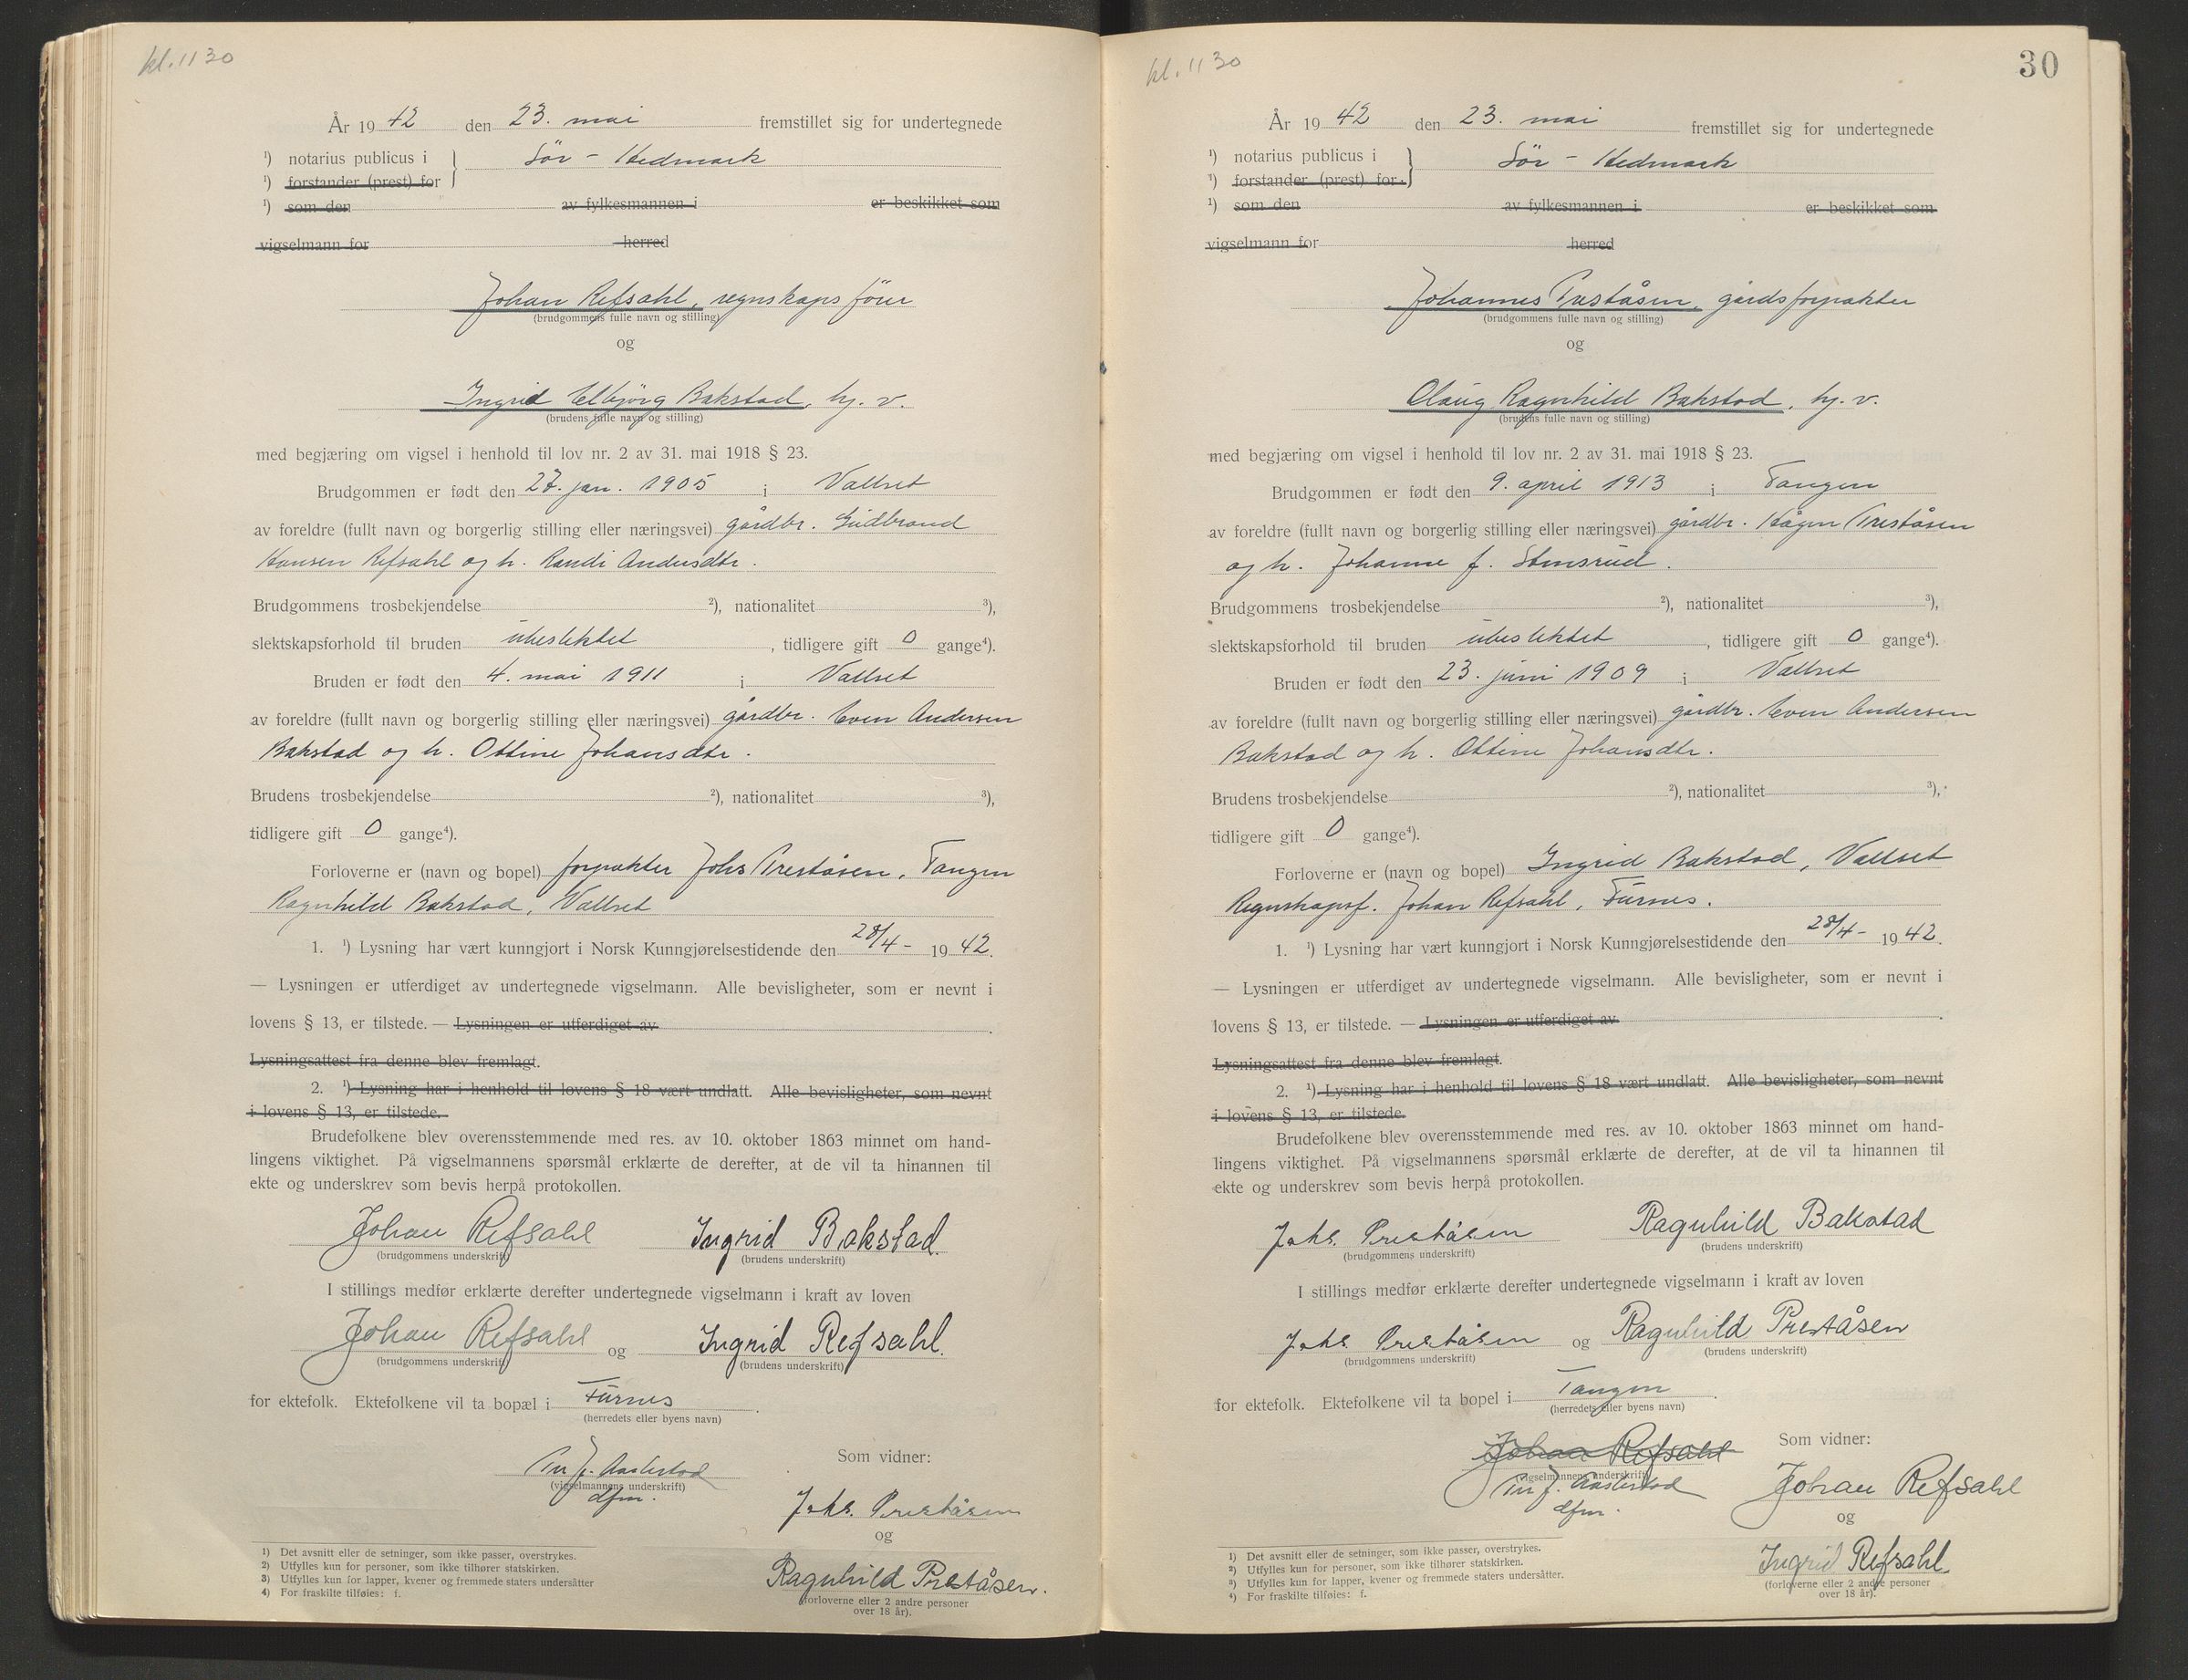 kl. 11 30
År 1942 den 23. mai fremstillet sig for undertegnede
¹) notarius publicus i } Sör - Hedmark
¹) forstander (prest) for
¹) som den av fylkesmannen i er beskikket som
vigselmann for herred
Johan Refsahl, regnskapsförer
(brudgommens fulle navn og stilling)
og
Ingrid Elbjörg Bakstad, hj. v.
(brudens fulle navn og stilling)
med begjæring om vigsel i henhold til lov nr. 2 av 31. mai 1918 § 23.
Brudgommen er født den 27. jan. 1905 i Vallset
av foreldre (fullt navn og borgerlig stilling eller næringsvei) gårdbr. Gudbrand
Hansen Refsahl og h. Randi Andersdtr.
Brudgommens trosbekjendelse ²), nationalitet ³),
slektskapsforhold til bruden ubeslektet, tidligere gift 0 gange⁴).
Bruden er født den 4. mai 1911 i Vallset
av foreldre (fullt navn og borgerlig stilling eller næringsvei) gårdbr. Even Andersen
Bakstad og h. Ottine Johansdtr.
Brudens trosbekjendelse ²), nationalitet ³),
tidligere gift 0 gange⁴).
Forloverne er (navn og bopel) forpakter Johs Preståsen, Tangen
Ragnhild Bakstad, Vallset
1. ¹) Lysning har vært kunngjort i Norsk Kunngjørelsestidende den 28/4 - 1942.
— Lysningen er utferdiget av undertegnede vigselmann. Alle bevisligheter, som er nevnt i
lovens § 13, er tilstede. — Lysningen er utferdiget av
Lysningsattest fra denne blev fremlagt.
2. ¹) Lysning har i henhold til lovens § 18 vært undlatt. Alle bevisligheter, som nevnt
i lovens § 13, er tilstede.
Brudefolkene blev overensstemmende med res. av 10. oktober 1863 minnet om hand-
lingens viktighet. På vigselmannens spørsmål erklærte de derefter, at de vil ta hinannen til
ekte og underskrev som bevis herpå protokollen.
Johan Refsahl Ingrid Bakstad.
(brudgommens underskrift) (brudens underskrift)
I stillings medfør erklærte derefter undertegnede vigselmann i kraft av loven
Johan Refsahl og Ingrid Refsahl.
(brudgommens underskrift) (brudens underskrift)
for ektefolk. Ektefolkene vil ta bopæl i Furnes.
(herredets eller byens navn)
Som vidner:
J. Aastestad
(vigselmannens underskrift)
dfm.
Johs. Preståsen
og
Ragnhild Preståsen.
(forloverne eller 2 andre personer
over 18 år).
1) Det avsnitt eller de setninger, som ikke passer, overstrykes.
2) Utfylles kun for personer, som ikke tilhører statskirken.
3) Utfylles kun for lapper, kvener og fremmede staters undersåtter
4) For fraskilte tilføies: f.
kl. 11 30
30
År 1942 den 23. mai fremstillet sig for undertegnede
¹) notarius publicus i } Sör - Hedmark
¹) forstander (prest) for
¹) som den av fylkesmannen i er beskikket som
vigselmann for herred
Johannes Preståsen, gårdsforpakter
(brudgommens fulle navn og stilling)
og
Olaug Ragnhild Bakstad, hj. v.
(brudens fulle navn og stilling)
med begjæring om vigsel i henhold til lov nr. 2 av 31. mai 1918 § 23.
Brudgommen er født den 9. april 1913 i Tangen
av foreldre (fullt navn og borgerlig stilling eller næringsvei) gårdbr. Hågen Preståsen
og h. Johanne f. Stensrud.
Brudgommens trosbekjendelse ²), nationalitet ³),
slektskapsforhold til bruden ubeslektet, tidligere gift 0 gange⁴).
Bruden er født den 23. juni 1909 i Vallset
av foreldre (fullt navn og borgerlig stilling eller næringsvei) gårdbr. Even Andersen
Bakstad og h. Ottine Johansdtr.
Brudens trosbekjendelse ²), nationalitet ³),
tidligere gift 0 gange⁴).
Forloverne er (navn og bopel) Ingrid Bakstad, Vallset
Regnskapsf. Johan Refsahl, Furnes.
1. ¹) Lysning har vært kunngjort i Norsk Kunngjørelsestidende den 28/4 - 1942.
— Lysningen er utferdiget av undertegnede vigselmann. Alle bevisligheter, som er nevnt i
lovens § 13, er tilstede. — Lysningen er utferdiget av
Lysningsattest fra denne blev fremlagt.
2. ¹) Lysning har i henhold til lovens § 18 vært undlatt. Alle bevisligheter, som nevnt
i lovens § 13, er tilstede.
Brudefolkene blev overensstemmende med res. av 10. oktober 1863 minnet om hand-
lingens viktighet. På vigselmannens spørsmål erklærte de derefter, at de vil ta hinannen til
ekte og underskrev som bevis herpå protokollen.
Johs. Preståsen Ragnhild Bakstad
(brudgommens underskrift) (brudens underskrift)
I stillings medfør erklærte derefter undertegnede vigselmann i kraft av loven
Johs. Preståsen og Ragnhild Preståsen
(brudgommens underskrift) (brudens underskrift)
for ektefolk. Ektefolkene vil ta bopel i Tangen.
(herredets eller byens navn)
Johan Refsahl Som vidner:
(vigselmannens underskrift)
J. Aastestad
dfm.
Johan Refsahl
og
Ingrid Refsahl.
(forloverne eller 2 andre personer
over 18 år).
1) Det avsnitt eller de setninger, som ikke passer, overstrykes.
2) Utfylles kun for personer, som ikke tilhører statskirken.
3) Utfylles kun for lapper, kvener og fremmede staters undersåtter.
4) For fraskilte tilføies: f.